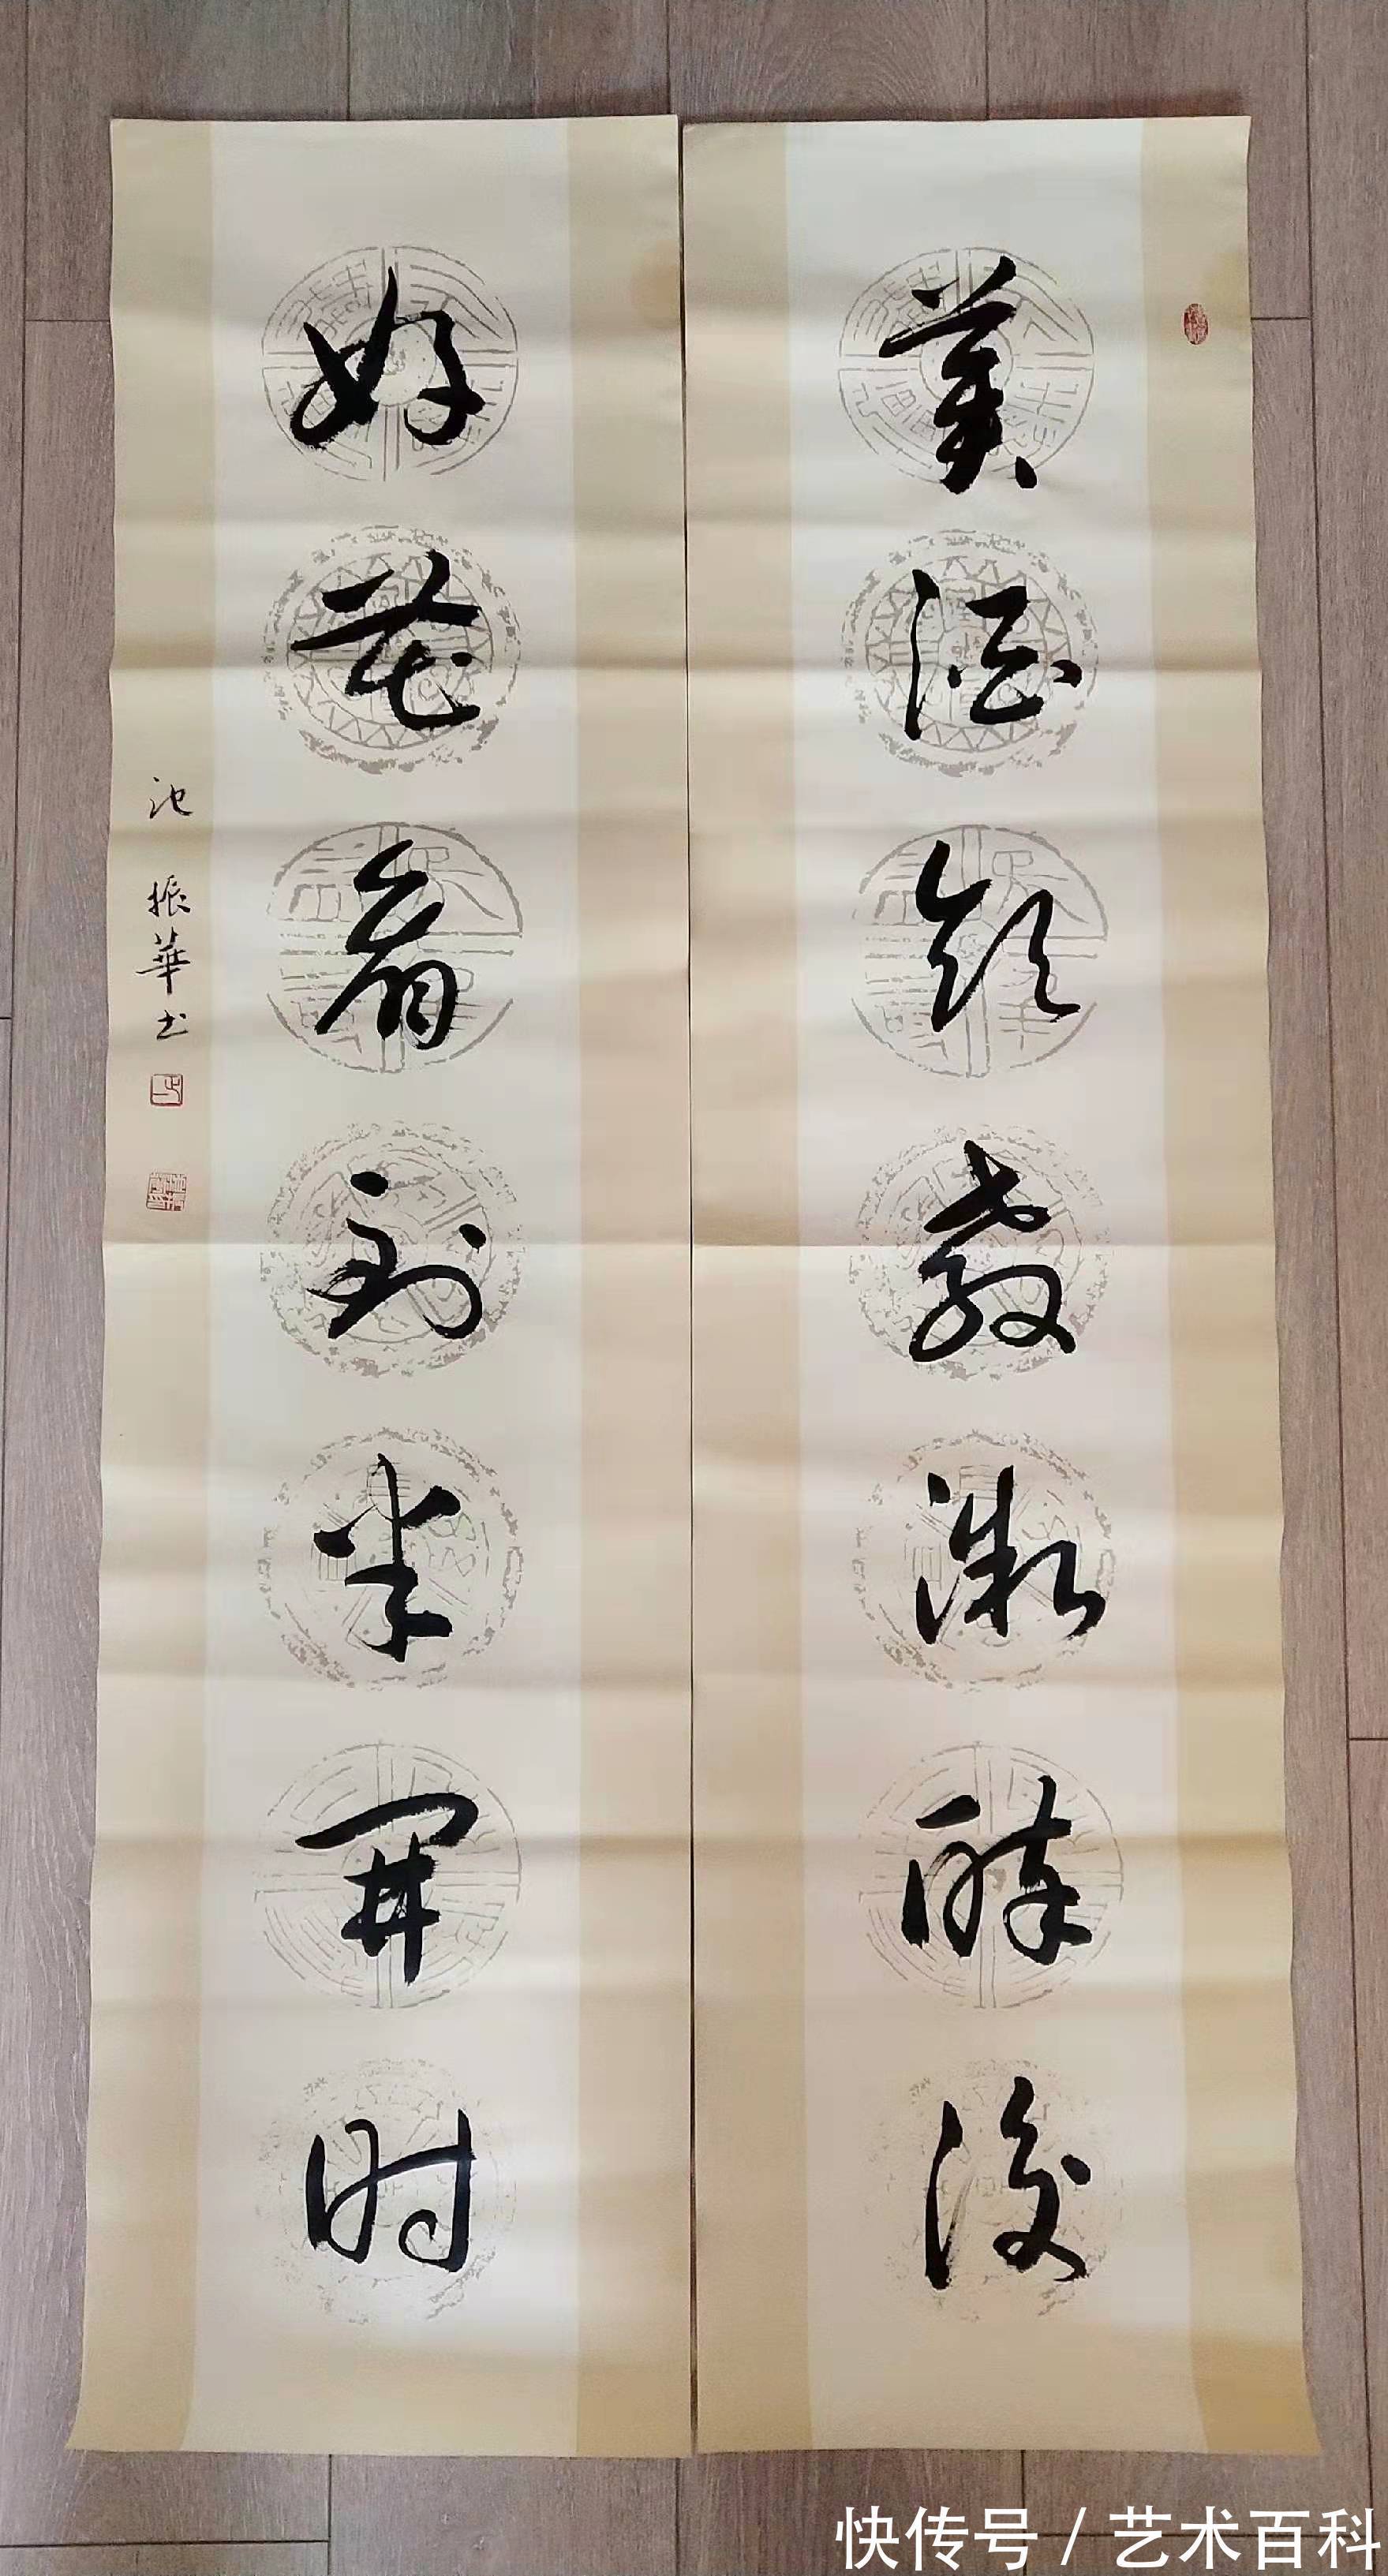 美酒飲教微醉後
好花看到半開時
池振華书
快传号/艺术百科